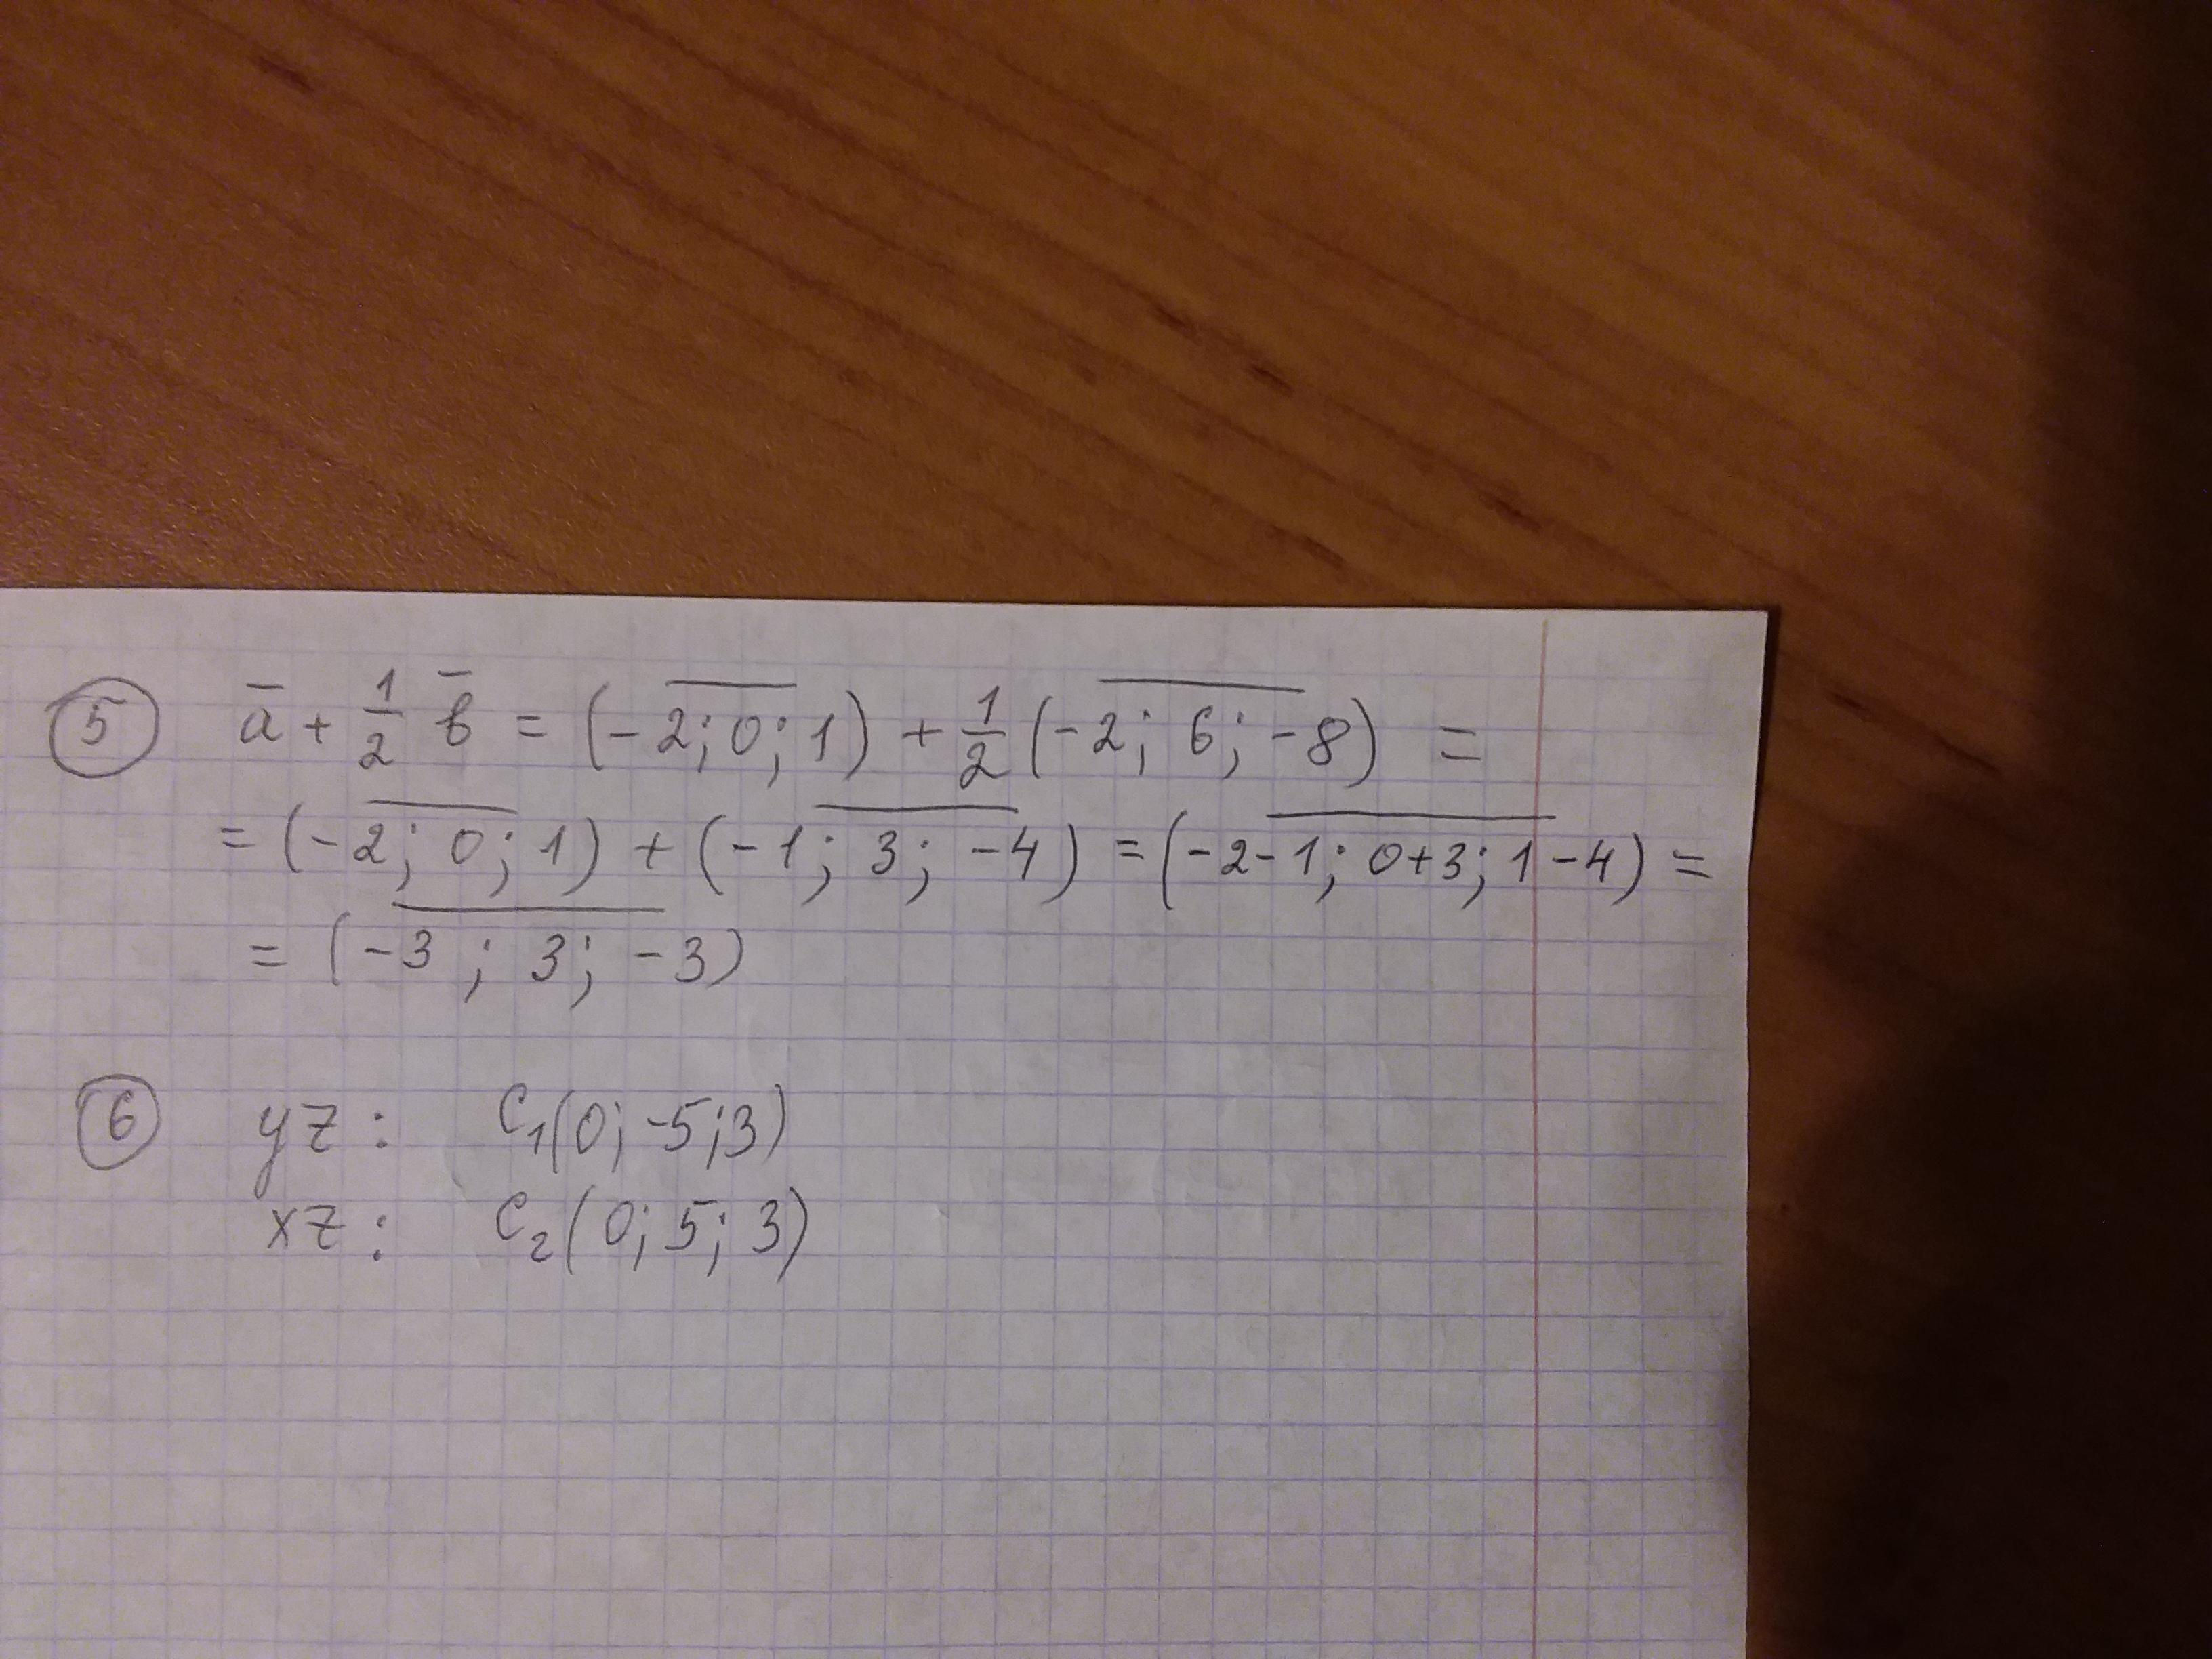 5 a̅ + 1/2 b̅ = (-2; 0; 1) + 1/2 (-2; 6; -8) =
= (-2; 0; 1) + (-1; 3; -4) = (-2-1; 0+3; 1-4) =
= (-3; 3; -3)
6 yz: C₁(0; -5; 3)
xz: C₂(0; 5; 3)